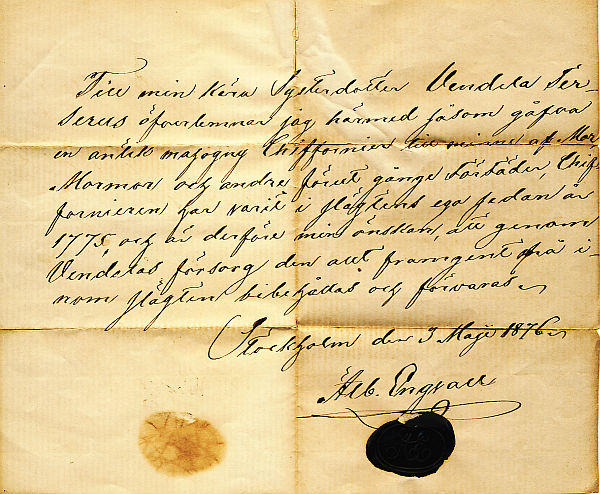 Till min kära Systerdotter Vendela Ser-
Serus öfverlemnar jag härmed såsom gåfva
en antik mahogny Chiffornier till minne af Mor,
Mormor och andre förut gångne Förfäder, Chif-
fornieren har varit i slägtens ego sedan år
1775, och är derföre min önskan, att genom
Vendelas försorg den allt framgent må i-
nom slägten bibehållas och förvaras.
Stockholm den 3 Maji 1876
Alb. Engvall